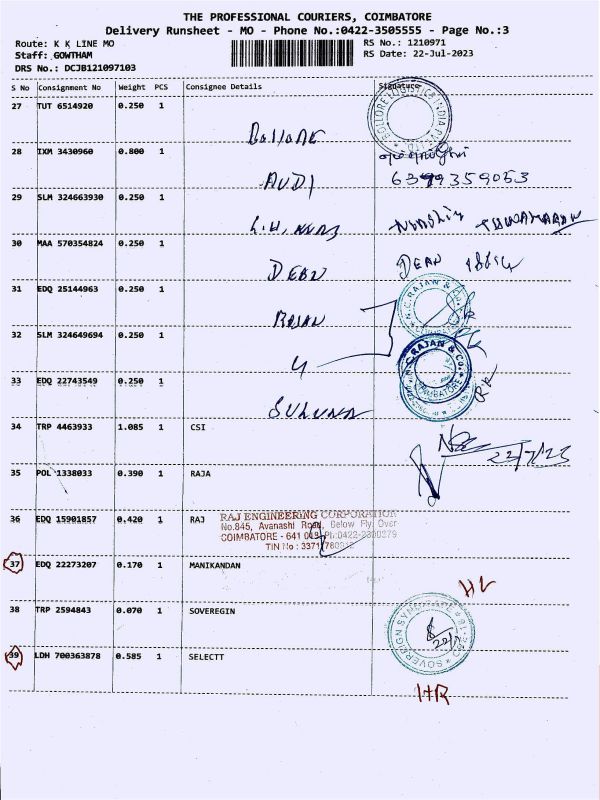 THE PROFESSIONAL COURIERS, COIMBATORE
Delivery Runsheet - MO - Phone No.:0422-3505555 - Page No.:3
Route: K K LINE MO
RS No.: 1210971
Staff: GOWTHAM
RS Date: 22-Jul-2023
DRS No.: DCJB121097103
S No Consignment No Weight PCS Consignee Details Signature
27 TUT 6514920 0.250 1
28 IXM 3430960 0.800 1 AUDI
6379359053
29 SLM 324663930 0.250 1
30 MAA 570354824 0.250 1 DEAN
31 EDQ 25144963 0.250 1 RAJAN
N.C.RAJAN & Co.
32 SLM 324649694 0.250 1
N.C.RAJAN & Co. COIMBATORE
33 EDQ 22743549 0.250 1
34 TRP 4463933 1.085 1 CSI
22/7/23
35 POL 1338033 0.390 1 RAJA
36 EDQ 15901857 0.420 1 RAJ
RAJ ENGINEERING CORPORATION
No.845, Avanashi Road, Below Fly Over
COIMBATORE - 641 018
TIN No :
37 EDQ 22273207 0.170 1 MANIKANDAN
38 TRP 2594843 0.070 1 SOVEREGIN
SOVEREIGN SYNDICATE
39 LDH 700363878 0.585 1 SELECTT
HR